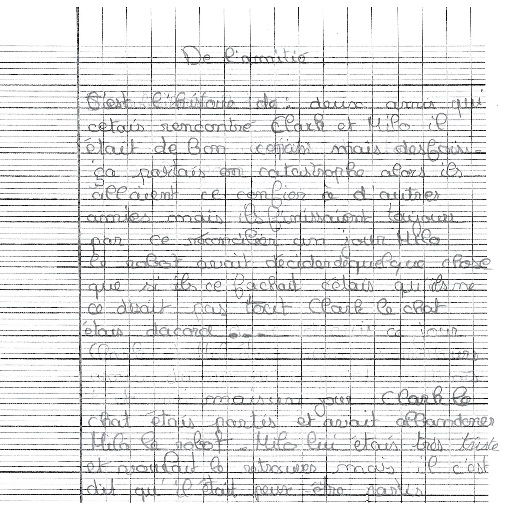 De l'amitié
C'est l'histoire de deux amis qui
cétais rencontré Clark et Milo il
était de Bon copain mais des fois
ça partais en catastrophe alors ils
allaient ce confier à d'autres
amies mais ils finissaient toujours
par ce réconcilier un jour Milo
le robot avait décider quelque chose
que si ils ce fachait cétais qu'ils ne
ce disait pas tout Clark le chat
étais dacord ce jour
mais un jour Clark le
chat étais partis et avait abbandoner
Milo le robot. Milo lui étais très triste
et voulait le retrouver mais il c'est
dit qu'il était peux-être partis